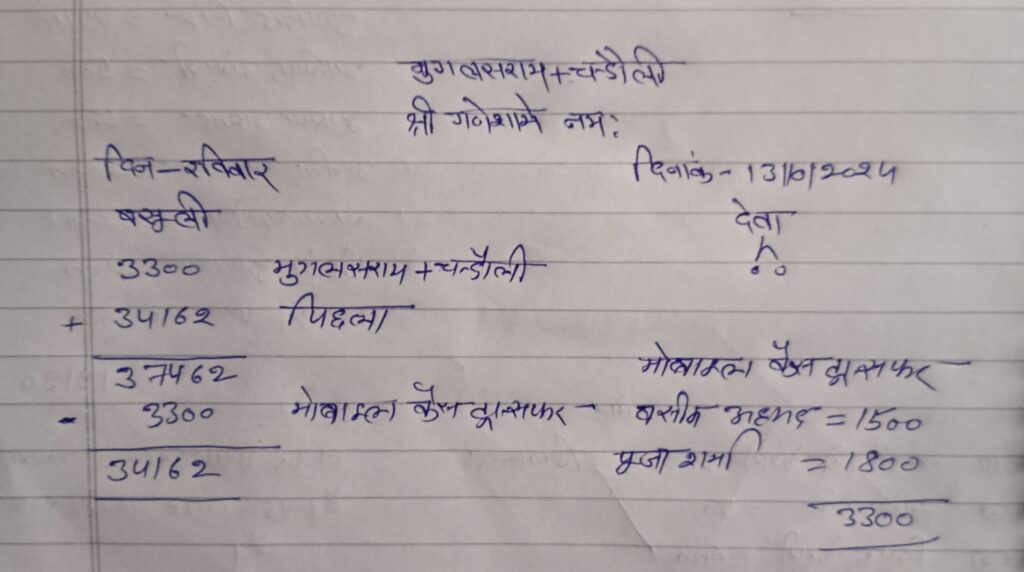 मुगलसराय+चन्डौली
श्री गणेशाये नमः
दिन-रविवार दिनांक- 13/10/2024
वसूली देता
3300 मुगलसराय+चन्डौली
+ 34162 पिछला
37462 मोबाइल कैस ट्रान्सफर
- 3300 मोबाइल कैस ट्रान्सफर वसीम अहमद = 1500
34162 पूजा शर्मा = 1800
3300